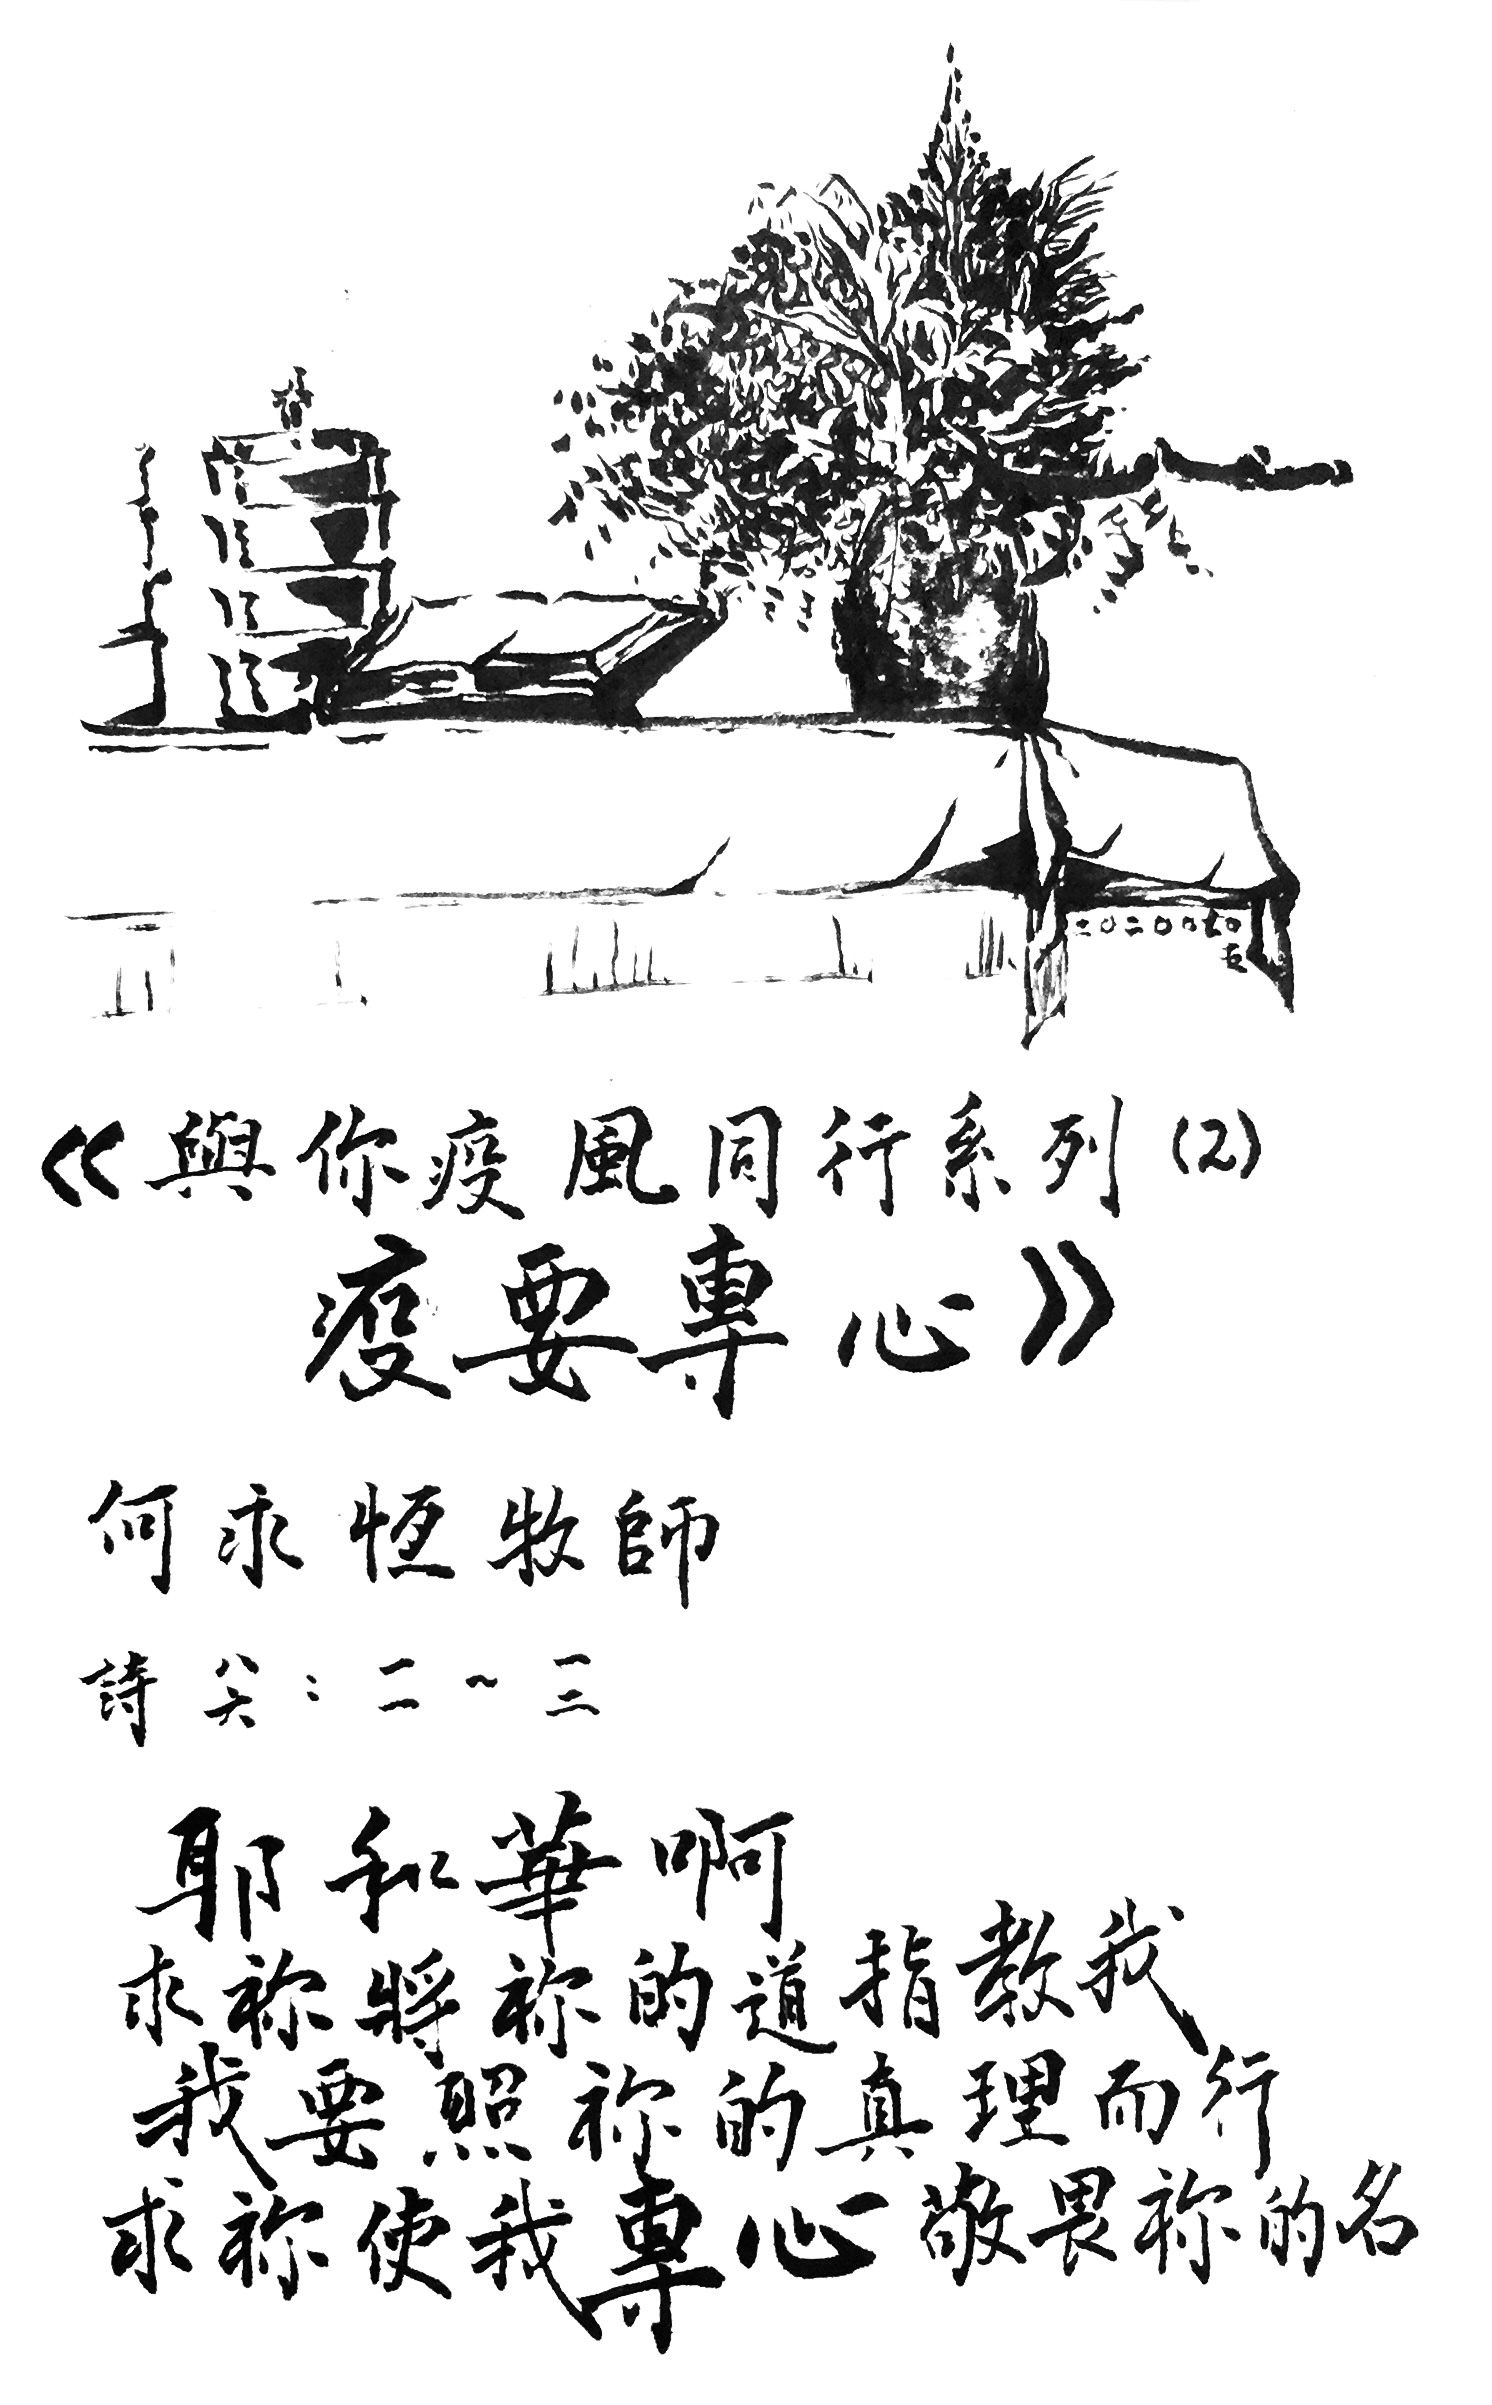 二〇二〇〇七〇
五
《與你疫風同行系列(2)
疫要專心》
何永恆牧師
詩八六：二~三
耶和華啊
求祢將祢的道指教我
我要照祢的真理而行
求祢使我專心敬畏祢的名